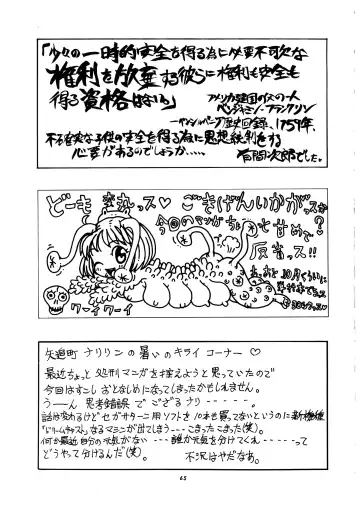 「少々の一時的安全を得る為に必要不可欠な
権利を放棄する彼らに権利も安全も
得る資格はない。」
アメリカ建国の
ベンジャミン・フランクリン
1759年.
不確実な子供の安全を得る為に思想統制をする
必要があるのでしょうか.....
有間次郎でした。
どーも 変丸っス♡ ごきげんいかがっスか?
今回のマンガ
反省っス!!
ワーイワーイ
矢追町 ナリリンの暑いのキライ コーナー ♡
最近ちょっと処刑マンガを控えようと思っていたので
今回はすこし おとなしめになってしまったかもしれません。
うーん 思考錯誤 でござるナリ -----。
話は変わるけどセガサターン用ソフトを10本も買ってないというのに新機種
「ドリームキャスト」なるマシンが出てしまう --- こまったこまった(笑)。
何か最近自分の元気がない --- 誰か元気を分けてくれ ----- って
どうやって分けるんだ(笑)。 不況はやだなあ。
65